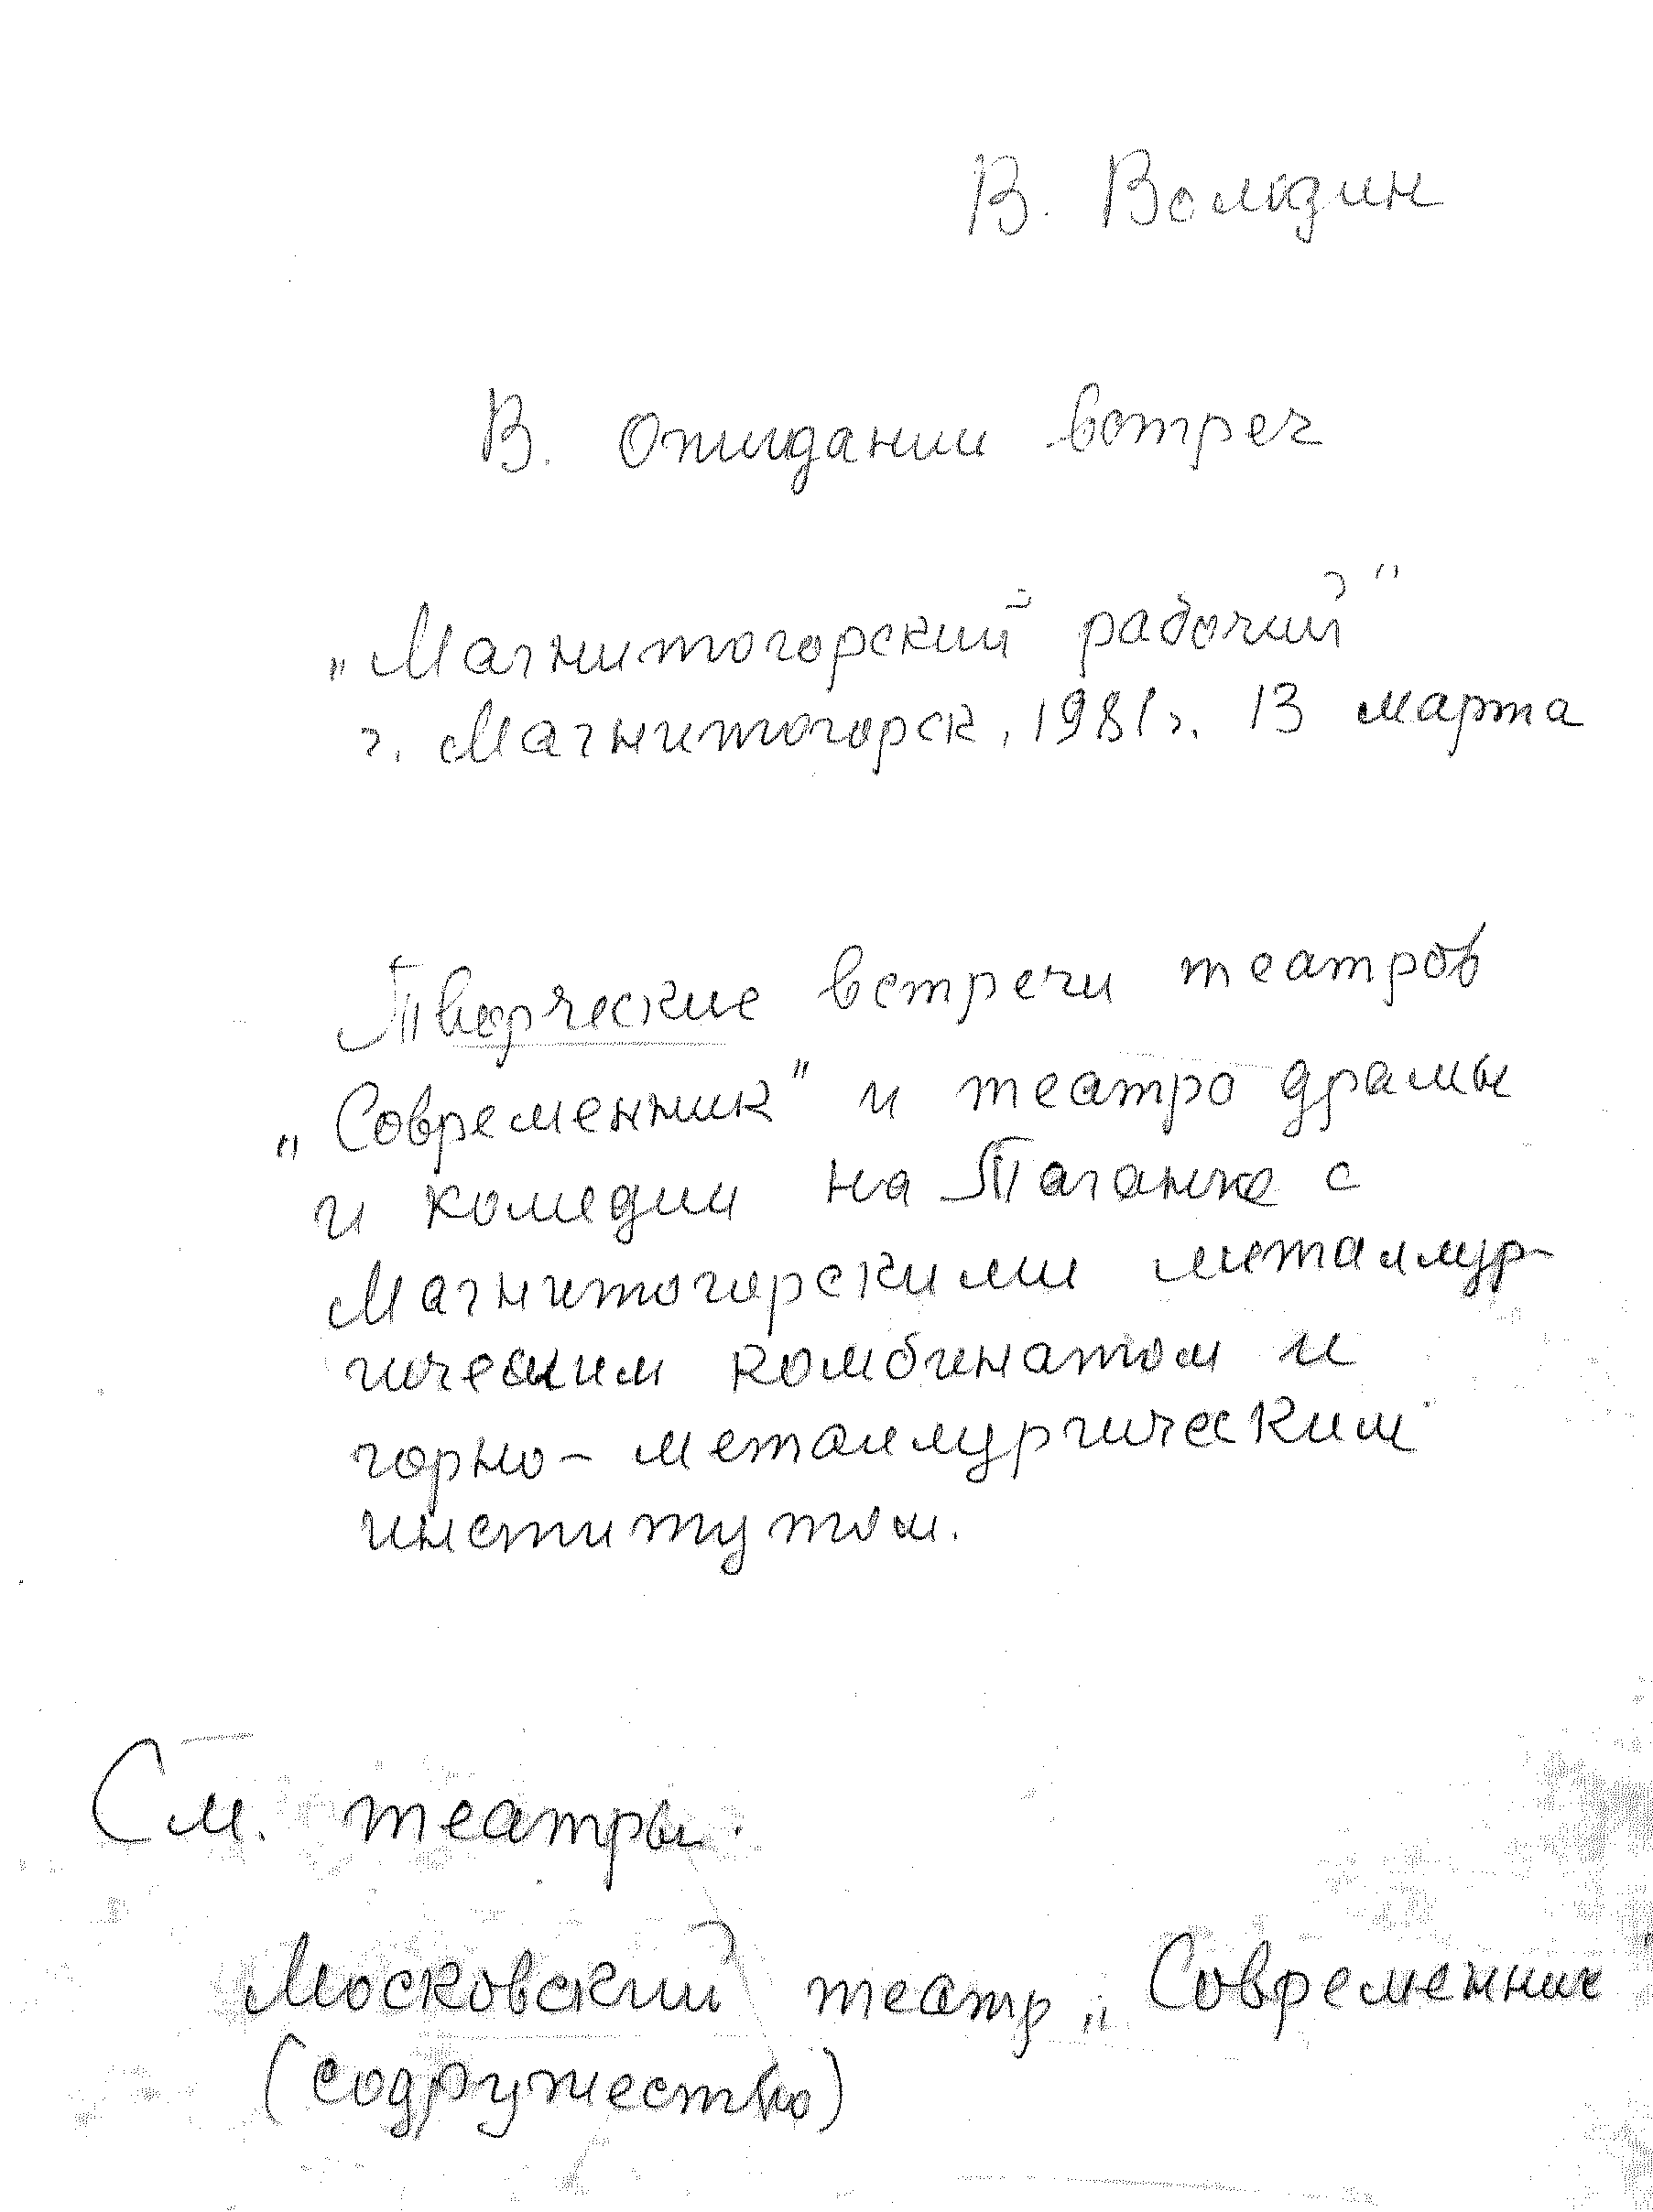 В. Володин
В. Ожидании встреч
„Магнитогорский рабочий"
г. Магнитогорск, 1981 г. 13 марта
Творческие встречи театров
„Современник" и театро драмы
и комедии на Таганке с
Магнитогорскими металлур-
гическим комбинатом и
горно-металлургическим
институтом.
См. театры.
Московский театр „Современник"
(содружество)